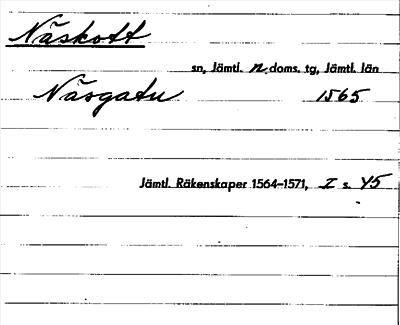 Näskott
sn, Jämtl. n. doms. tg, Jämtl. län
Näsgatu 1565
Jämtl. Räkenskaper 1564–1571, I s. 45